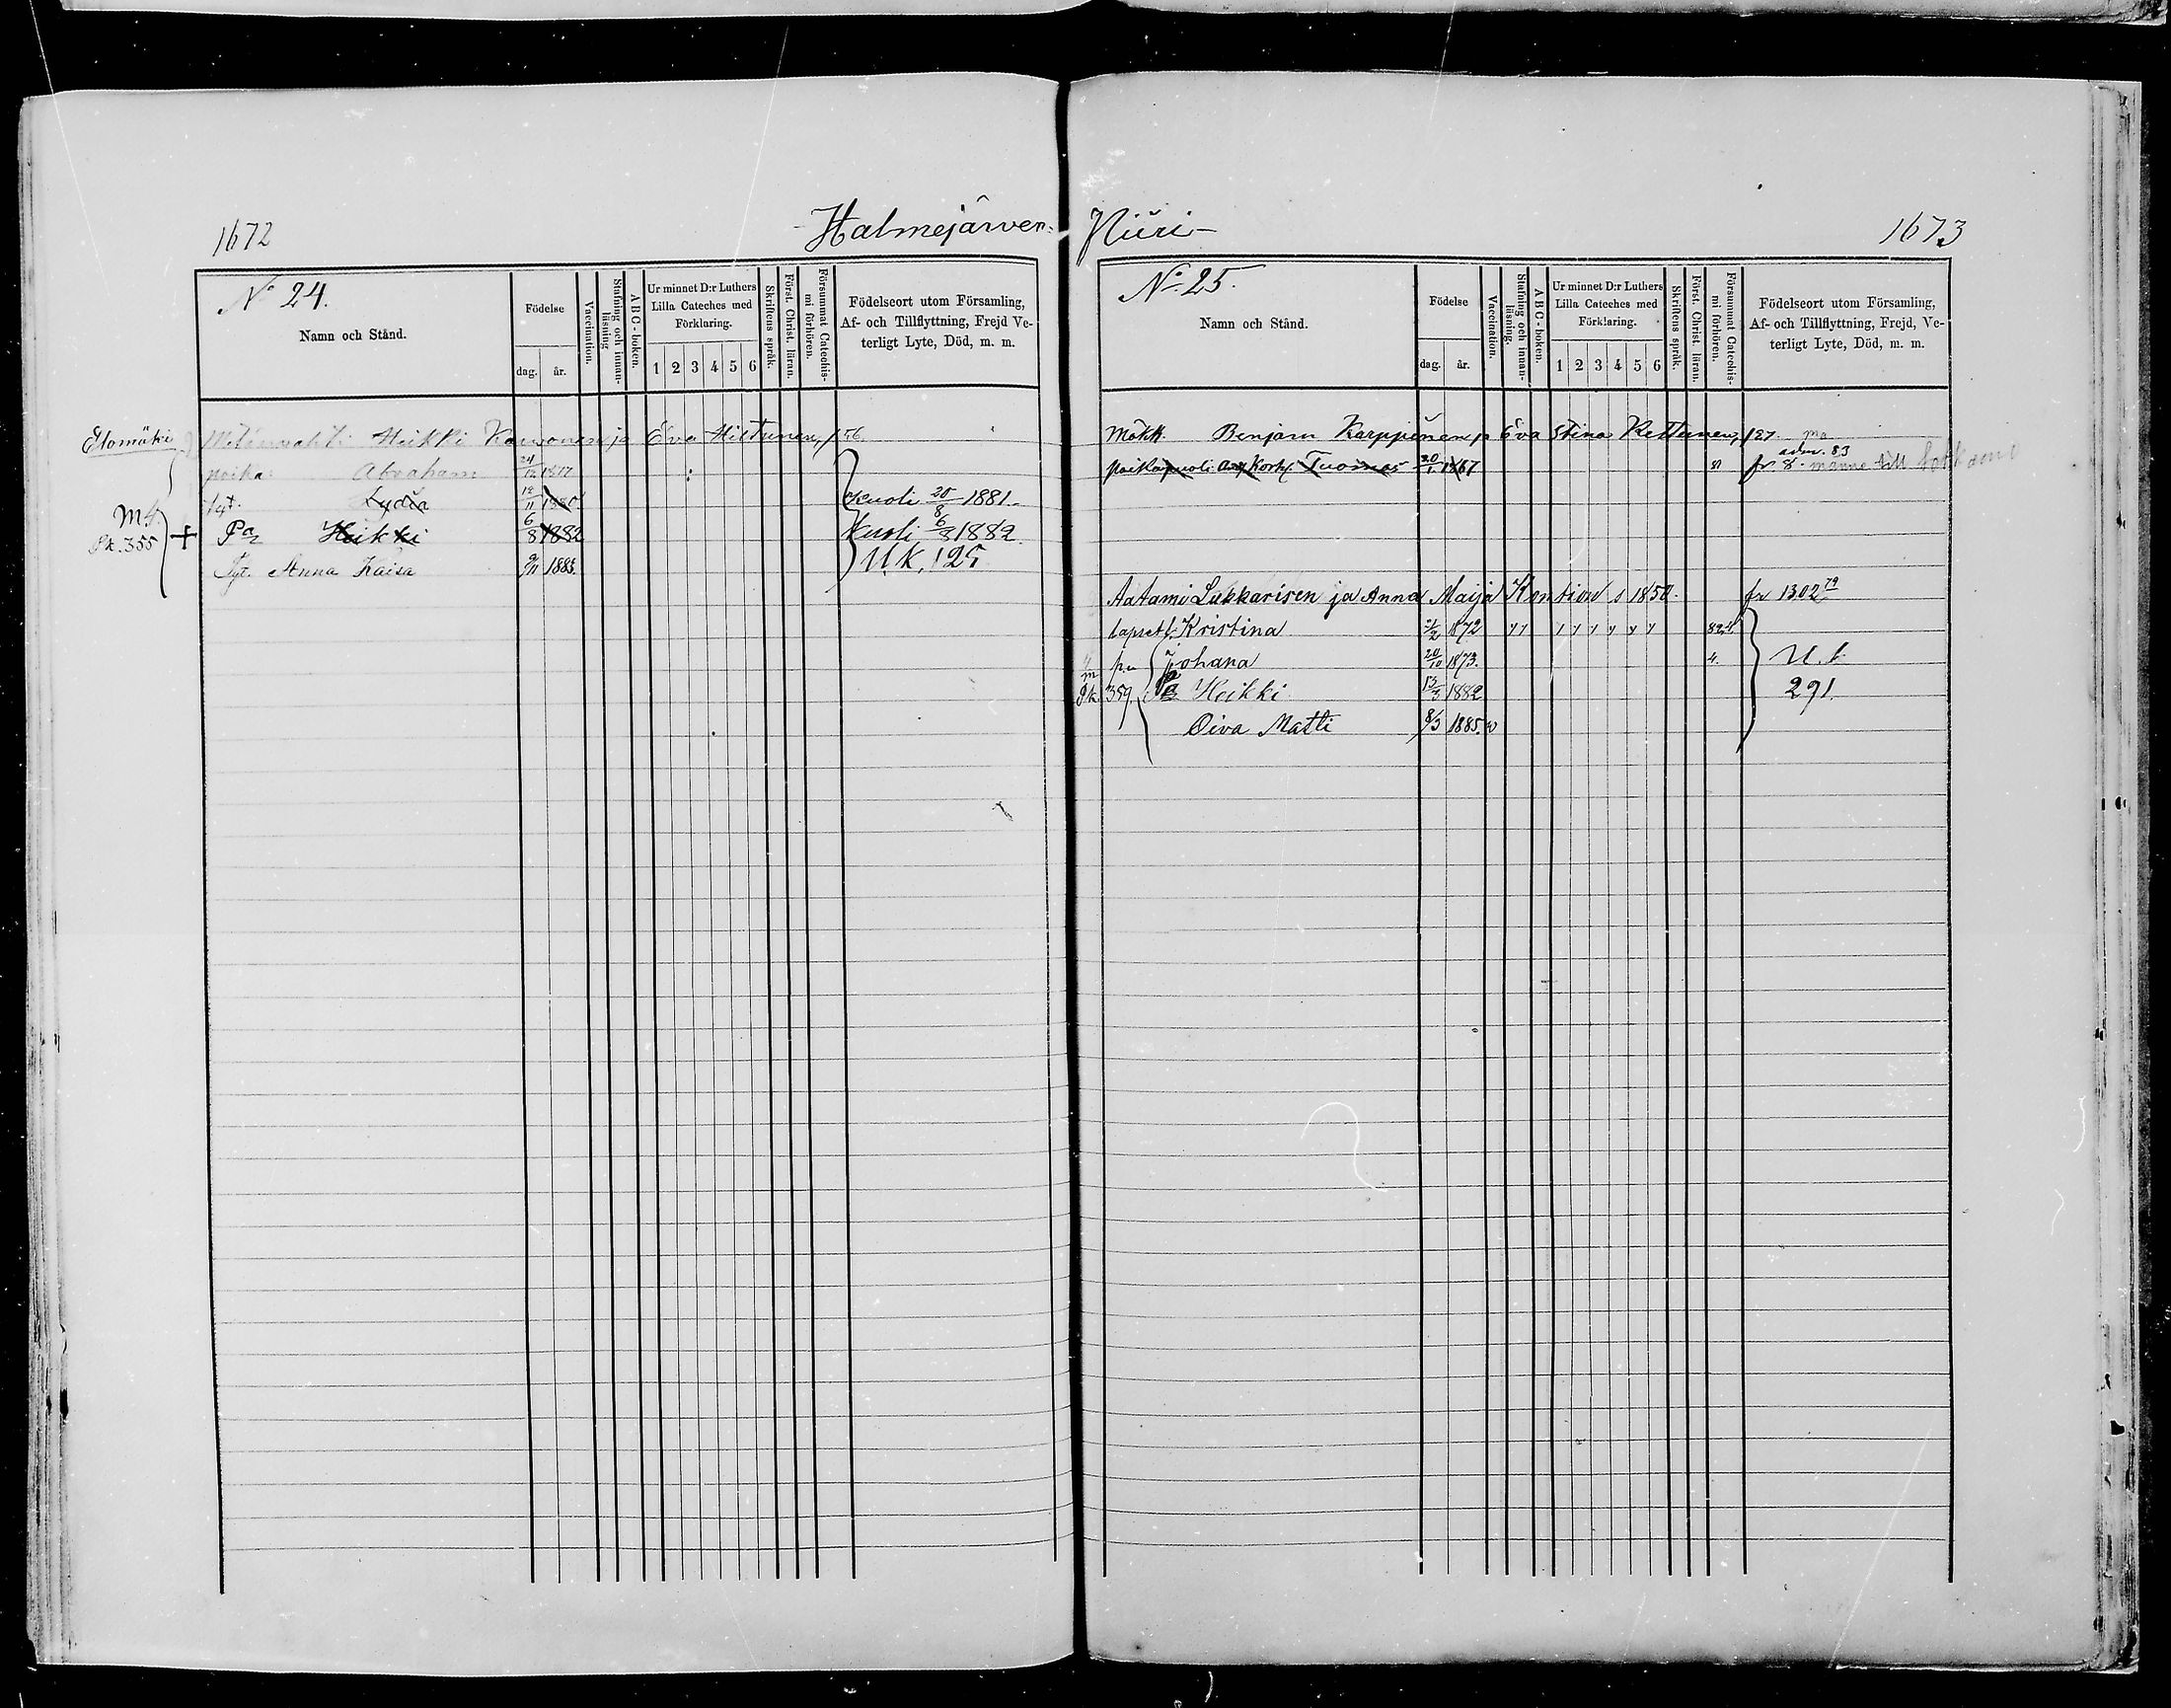 1672
Halmejärven
N:o 24.
Namn och Stånd.
Födelse
dag. år.
Vaccination.
Stafning och innanläsning
A B C-boken.
Ur minnet D:r Luthers Lilla Cateches med Förklaring.
1 2 3 4 5 6
Skriftens språk.
Först. Christ. läran.
Försummat Catechismi förhören.
Födelseort utom Församling, Af- och Tillflyttning, Frejd Veterligt Lyte, Död, m. m.
Elomäki
Heikki Karvonen ja Eva Hiltunen,
poika Abraham 24/12 1877
tyt. Lydia 12/11 1880 Kuoli 20/8 1881.
M.4. Pk. 355
Pa Heikki 6/8 1882 Kuoli 6/8 1882.
Tyt. Anna Kaisa 9/11 1883. U.K. 125
Niiri
1673
N:o 25.
Namn och Stånd.
Födelse
dag. år.
Vaccination.
Stafning och innanläsning.
A B C-boken.
Ur minnet D:r Luthers Lilla Cateches med Förklaring.
1 2 3 4 5 6
Skriftens språk.
Först. Christ. läran.
Försummat Catechismi förhören.
Födelseort utom Församling, Af- och Tillflyttning, Frejd, Veterligt Lyte, Död, m. m.
Mökk. Benjam Karppinen ja Eva Stina Kettunen, 127
adm. 83
poikapuoli Tuomas 20/1 1867
Aatami Lukkarisen ja Anna Maija Kontion s 1850. fr 1302 79
lapset Kristina 2/2 1872 82,4
pa Johana 20/10 1873. 4. U.k.
m Pk 359. Heikki 13/3 1882 291.
Oiva Matti 8/3 1885.